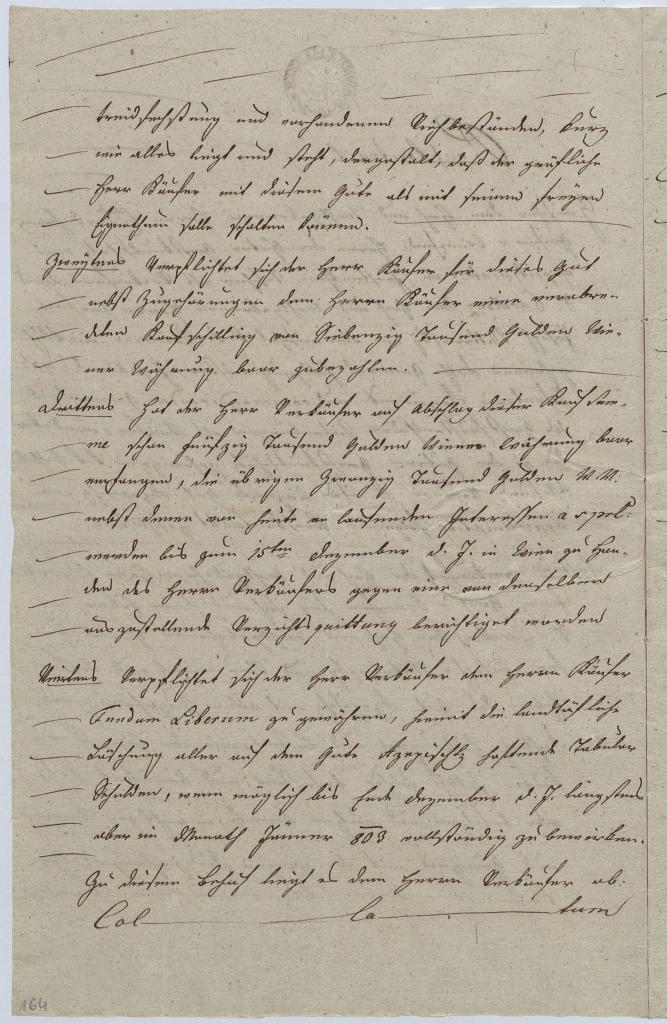 treidsechsung und vorhandenen Viehbeständen, kurz
wie alles liegt und steht, dergestalt, daß der gräfliche
Herr Käufer mit diesem Gute als mit seinem freyen
Eigenthum solle schalten können.
Zweytens Verpflichtet sich der Herr Käufer für dieses Gut
nebst Zugehörungen dem Herrn Käufer einen verabre-
deten Kaufschilling von Siebenzig Tausend Gulden Wie-
ner Währung baar zubezahlen.
Drittens hat der Herr Verkäufer auf Abschlag dieser Kaufsum-
me schon fünfzig Tausend Gulden Wiener Währung baar
empfangen, die übrigen Zwanzig Tausend Gulden W. W.
nebst denen von heute an laufenden Interessen a 5 pCt:
werden bis zum 15ten Dezember d. J. in Wien zu Han-
den des Herrn Verkäufers gegen eine von denselben
auszustellende Verzichtsquittung berichtiget werden
Viertens Verpflichtet sich der Herr Verkäufer dem Herrn Käufer
Fundum Liberum zu gewähren, hiemit die landtäfliche
Löschung aller auf dem Gute haftende Tabular
Schulden, wenn möglich bis Ende Dezember d. J. längstens
aber im Monath Jänner 803 vollständig zu bewirken.
Zu diesem Behuf liegt es dem Herrn Verkäufer ob:
Col la tum
164